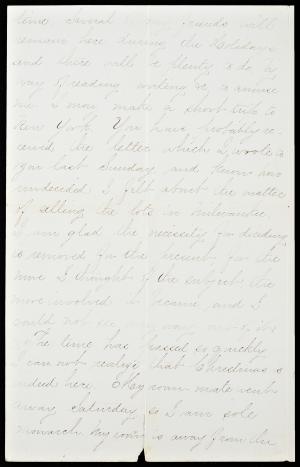 time several of my friends will
remain here during the Holidays
and there will be plenty to do by
way of reading, writing &c to amuse
me. I may make a short trip to
New York. You have probably re-
ceived the letter which I wrote
you last Sunday and know how
undecided I felt about the matter
of selling the lots in Milwaukee.
I am glad the necessity for deciding
is removed for the present for the
more I thought of the subject the
more involved it became and I
could not see my way out of it.
The time has passed so quickly
I can not realize that Christmas is
indeed here. My room mate went
away Saturday, so I am sole
monarch. My room is away from the